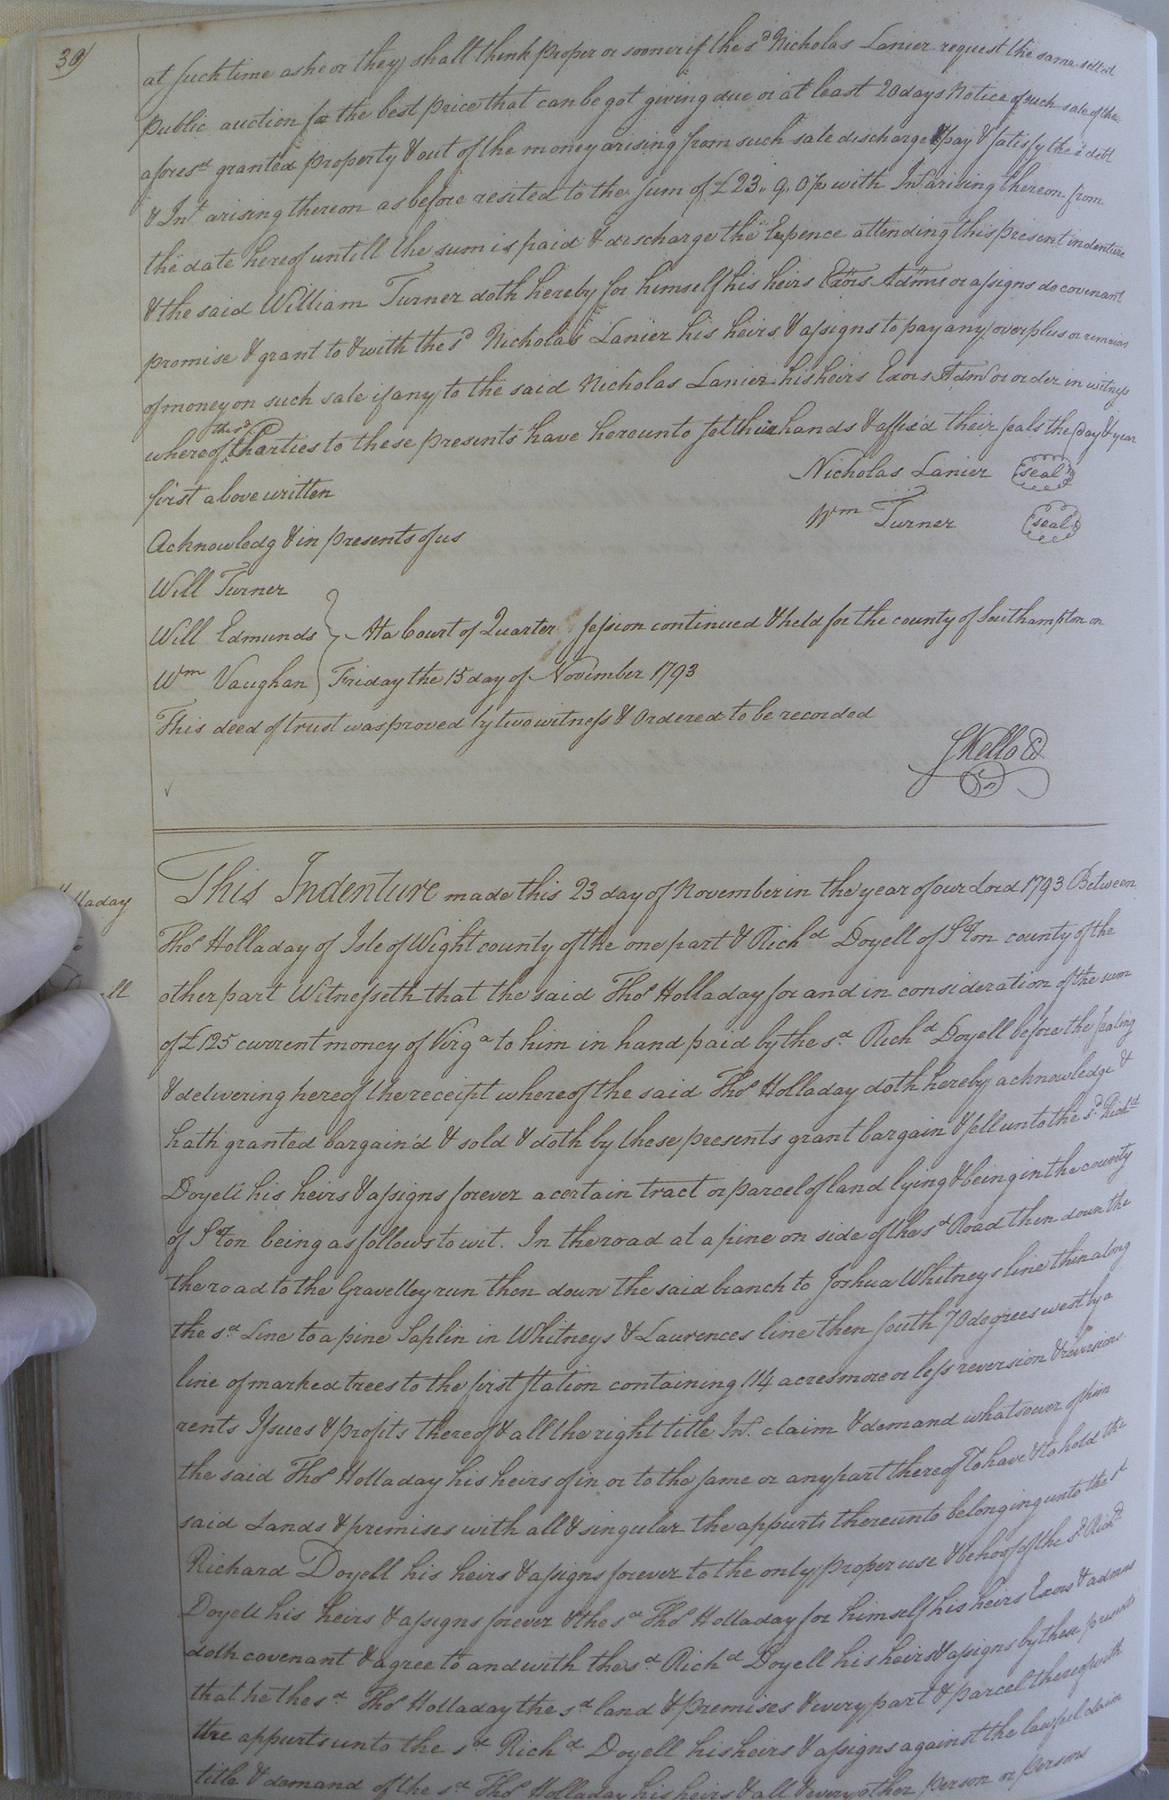 30
at such time as he or they shall think proper or sooner if the sd Nicholas Lanier request the same sell at
public auction for the best price that can be got giving due or at least 20 days Notice of such sale of the
aforesd granted property & out of the money arising from such sale discharge & pay & satisfy the sd debt
& Int arising thereon as before resited to the sum of £23,, 9,, 0 1/2 with Int arising thereon from
the date hereof untill the sum is paid & discharge the Expence attending this present indenture
& the said William Turner doth hereby for himself his heirs Exors Adms or assigns do covenant
promise & grant to & with the sd Nicholas Lanier his heirs & assigns to pay any overplus or
of money on such sale if any to the said Nicholas Lanier his heirs Exors Adms or order in witness
whereof the sd Parties to these presents have hereunto set their hands & affixd their seals the day & year
first above written
Nicholas Lanier seal
Acknowledg & in presents of us
Wm Turner seal
Will Turner
Will Edmunds At a Court of Quarter session continued & held for the county of Southampton on
Wm Vaughan Friday the 15 day of November 1793
This deed of trust was proved by two witness & Ordered to be recorded
S Kello C
This Indenture made this 23 day of November in the year of our Lord 1793 Between
Thos Holladay of Isle of Wight county of the one part & Richd Doyell of S'ton county of the
other part Witnesseth that the said Thos Holladay for and in consideration of the sum
of £125 current money of Virga to him in hand paid by the sd Richd Doyell before the sealing
& delivering hereof the receipt whereof the said Thos Holladay doth hereby acknowledge &
hath granted bargain'd & sold & doth by these presents grant bargain & sell unto the sd Richd
Doyell his heirs & assigns forever a certain tract or parcel of land lying & being in the county
of S'ton being as follows to wit. In the road at a pine on side of the sd Road then down the
the road to the Gravelley run then down the said branch to Joshua Whitneys line thin along
the sd Line to a pine Saplin in Whitneys & Laurences line then south 70 degrees west by a
line of marked trees to the first station containing 114 acres more or less reversion & reversions
rents Issues & profits thereof & all the right title Int. claim & demand whatsoever of him
the said Thos Holladay his heirs of in or to the same or any part thereof To have & to hold the
said Lands & premises with all & singular the appurts thereunto belonging unto the sd
Richard Doyell his heirs & assigns forever to the only proper use & behoof of the sd Richd
Doyell his heirs & assigns forever & the sd Thos Holladay for himself his heirs Exors & admrs
doth covenant & agree to and with the sd Richd Doyell his heirs & assigns by these presents
that he the sd Thos Holladay the sd land & premises & every part & parcel thereof with
the appurts unto the sd Richd Doyell his heirs & assigns against the lawful claim
title & demand of the sd Thos Holladay his heirs & all & every other person or persons